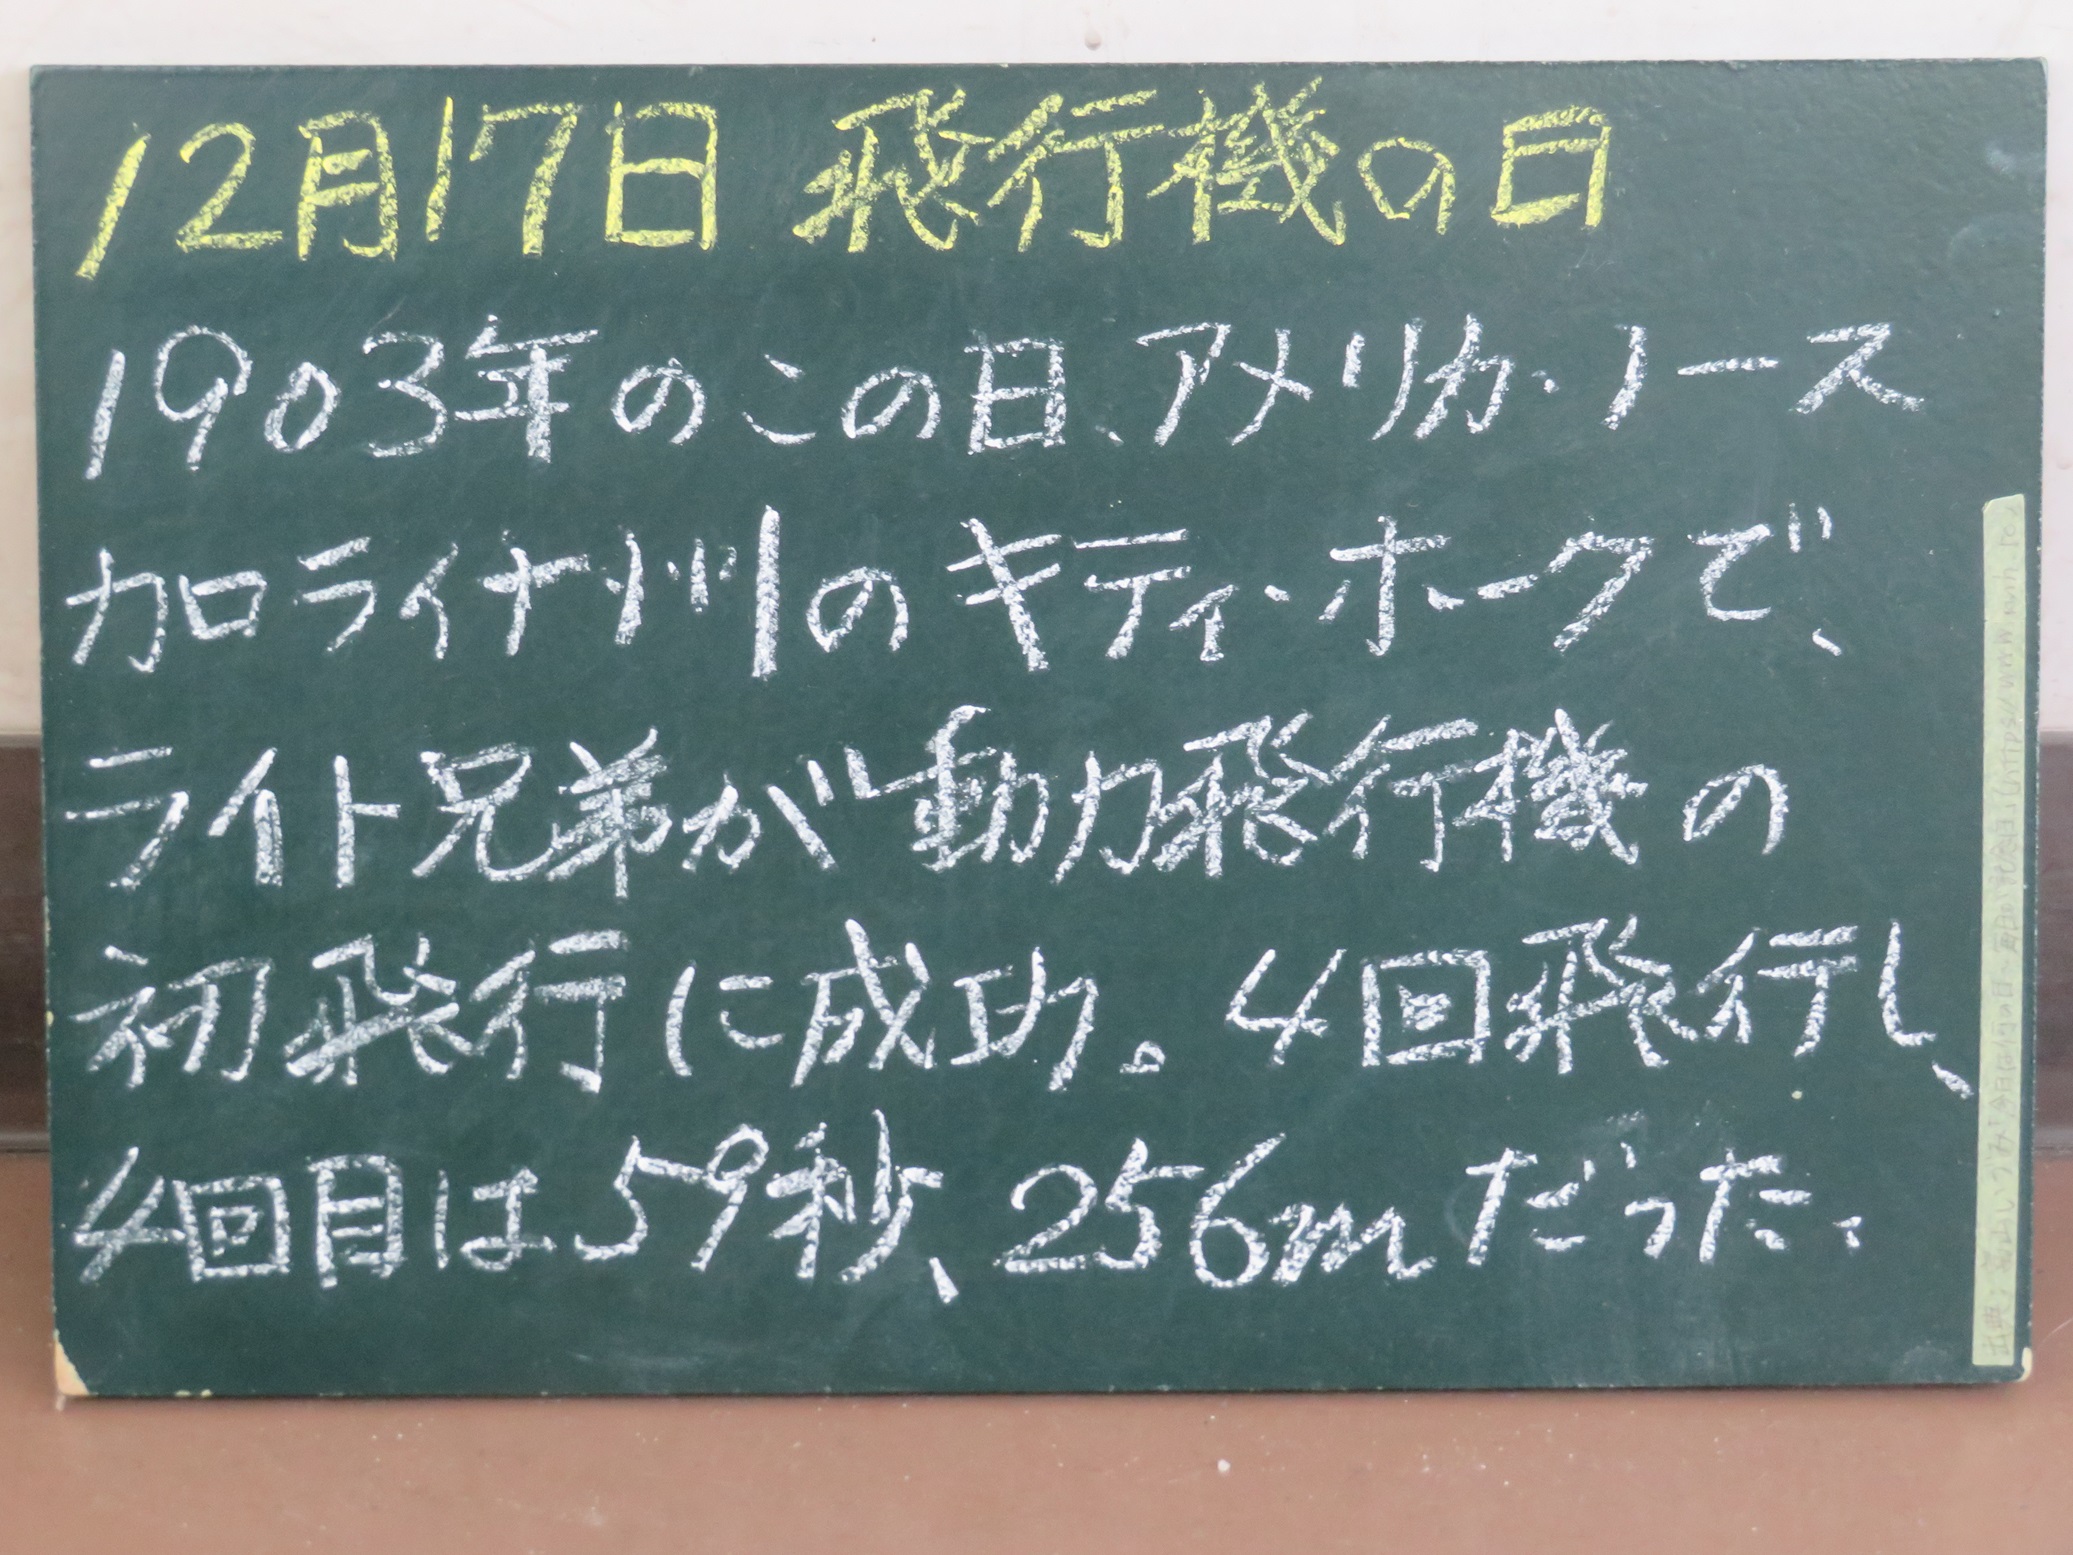 12月17日 飛行機の日
1903年のこの日、アメリカ・ノース
カロライナ州のキティ・ホークで、
ライト兄弟が動力飛行機の
初飛行に成功。4回飛行し、
4回目は59秒、256mだった。
出典:
今日は何の日~毎日が記念日~